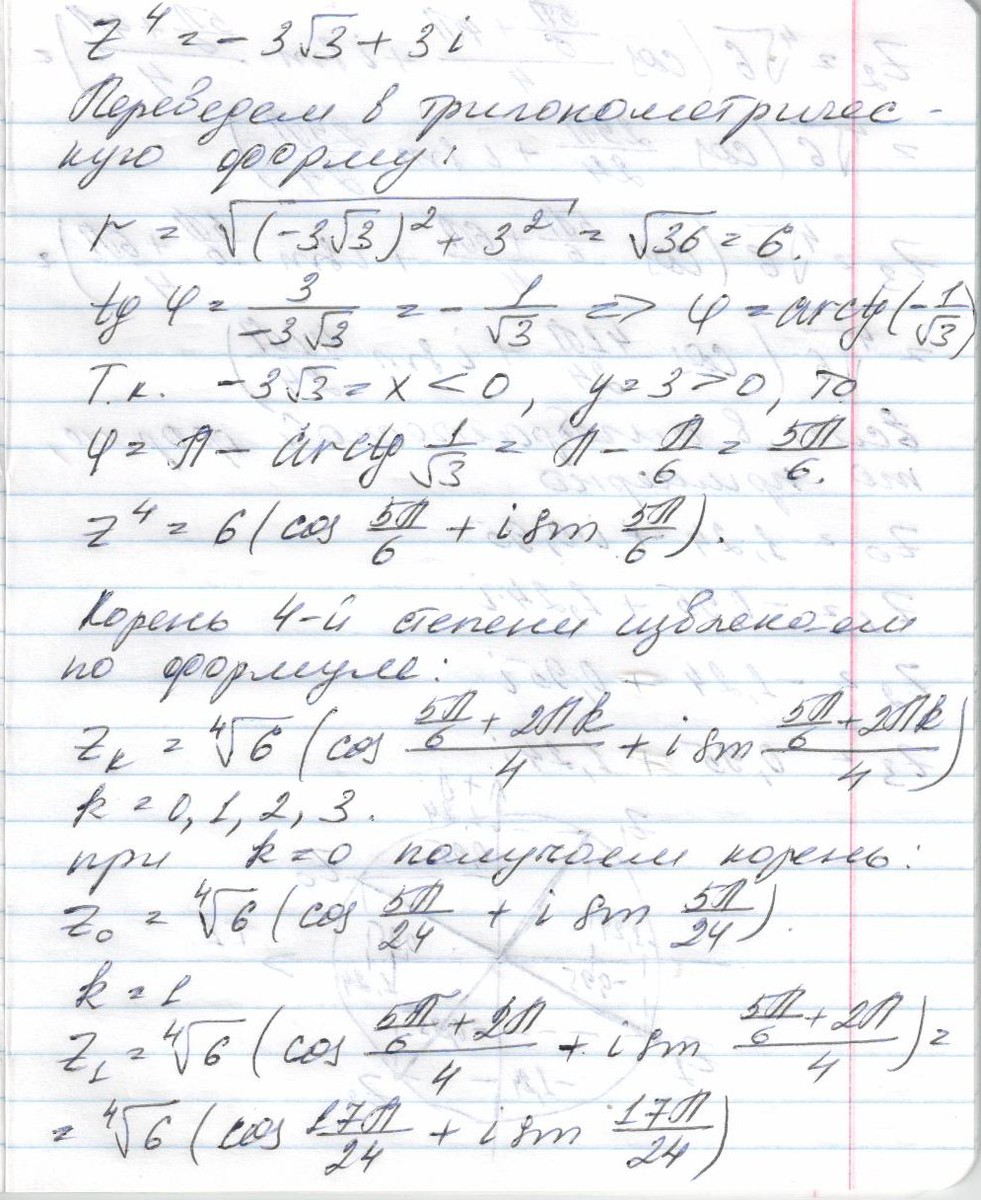 z⁴ = - 3√3 + 3i
Переведем в тригонометричес-
кую форму:
r = √((-3√3)² + 3²) = √36 = 6.
tg φ = 3/(-3√3) = - 1/√3 => φ = arctg(-1/√3)
Т.к. -3√3 = x < 0, y = 3 > 0, то
φ = π - arctg 1/√3 = π - π/6 = 5π/6.
z⁴ = 6(cos 5π/6 + i sin 5π/6).
Корень 4-й степени извлекаем
по формуле:
z_k = ⁴√6 (cos (5π/6 + 2πk)/4 + i sin (5π/6 + 2πk)/4)
k = 0, 1, 2, 3.
при k=0 получаем корень:
z₀ = ⁴√6 (cos 5π/24 + i sin 5π/24).
k = 1
z₁ = ⁴√6 (cos (5π/6 + 2π)/4 + i sin (5π/6 + 2π)/4) =
= ⁴√6 (cos 17π/24 + i sin 17π/24)